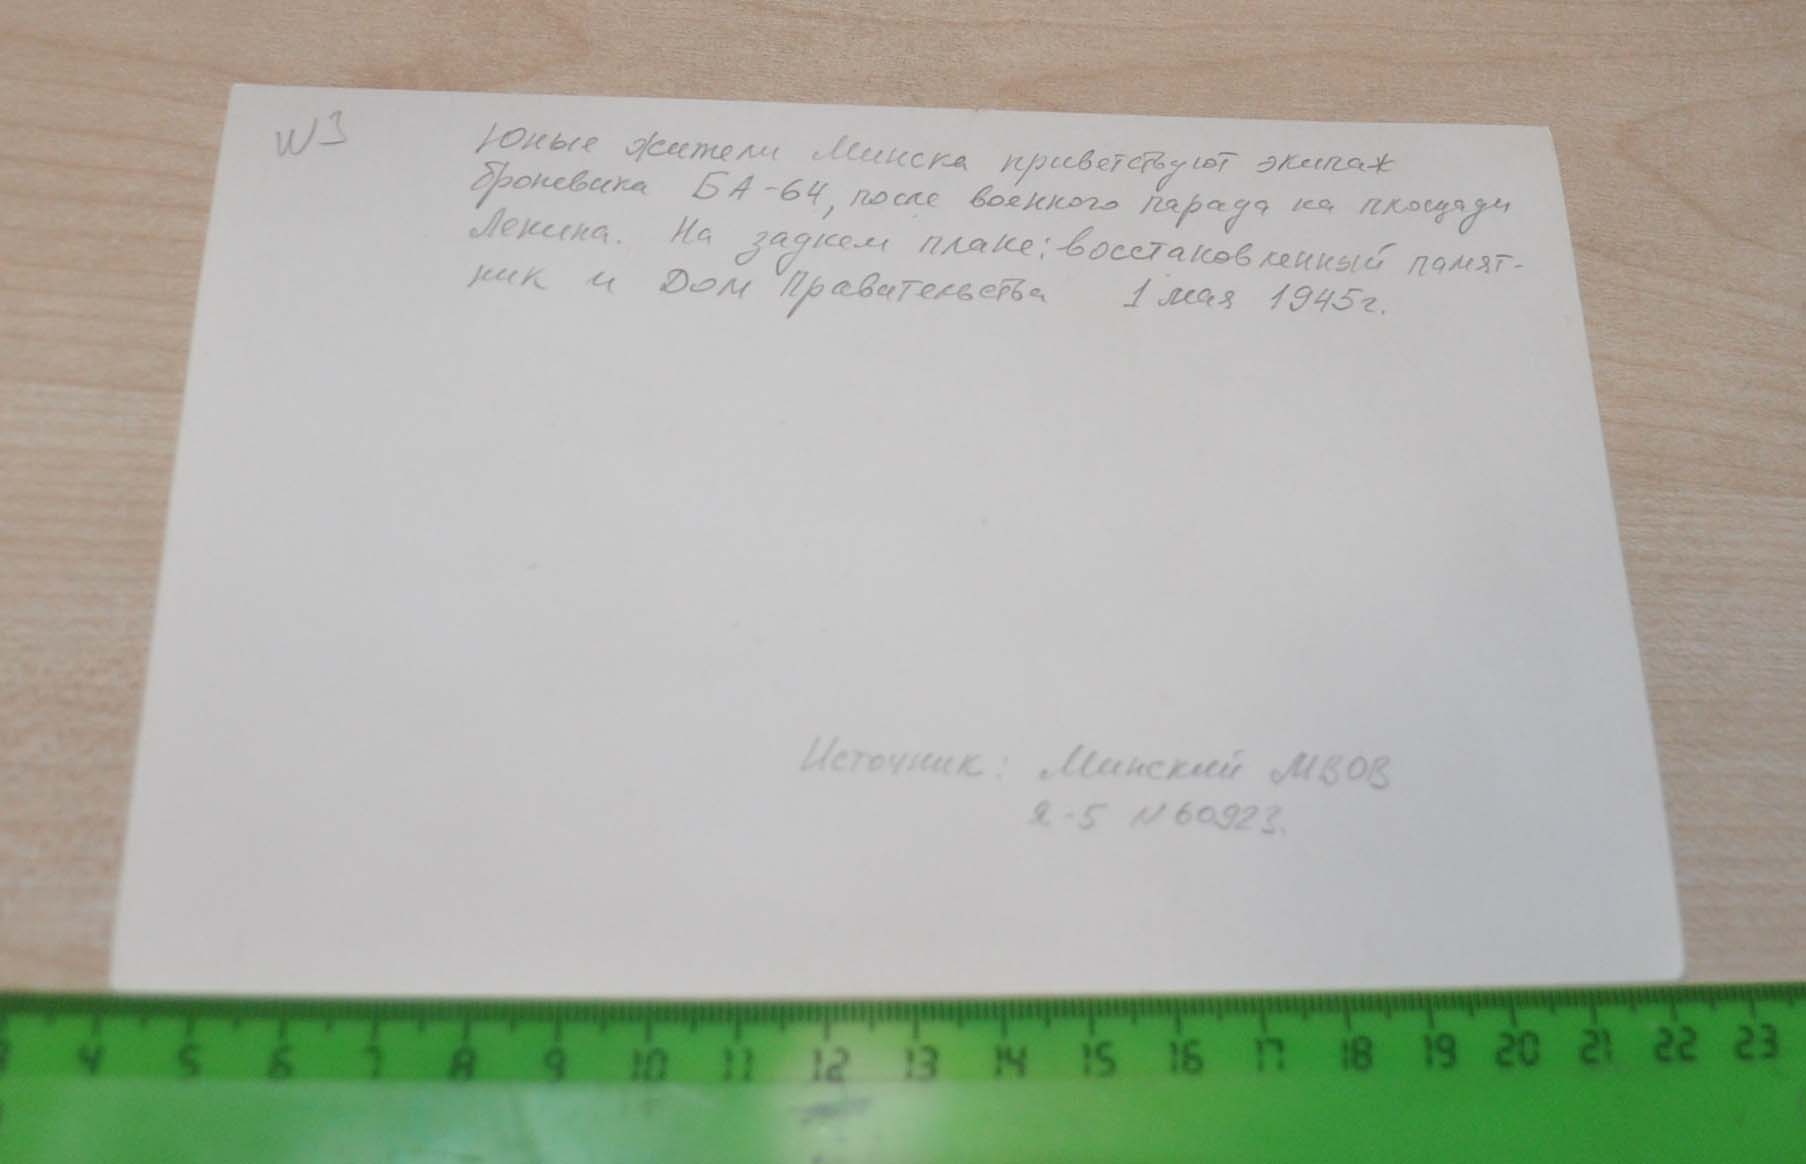 N3
Юные жители Минска приветствуют экипаж
броневика БА-64, после военного парада на площади
Ленина. На заднем плане: восстановленный памят-
ник и Дом Правительства 1 мая 1945г.
Источник: Минский МВОВ
Я-5 N 60923.
3 4 5 6 7 8 9 10 11 12 13 14 15 16 17 18 19 20 21 22 23